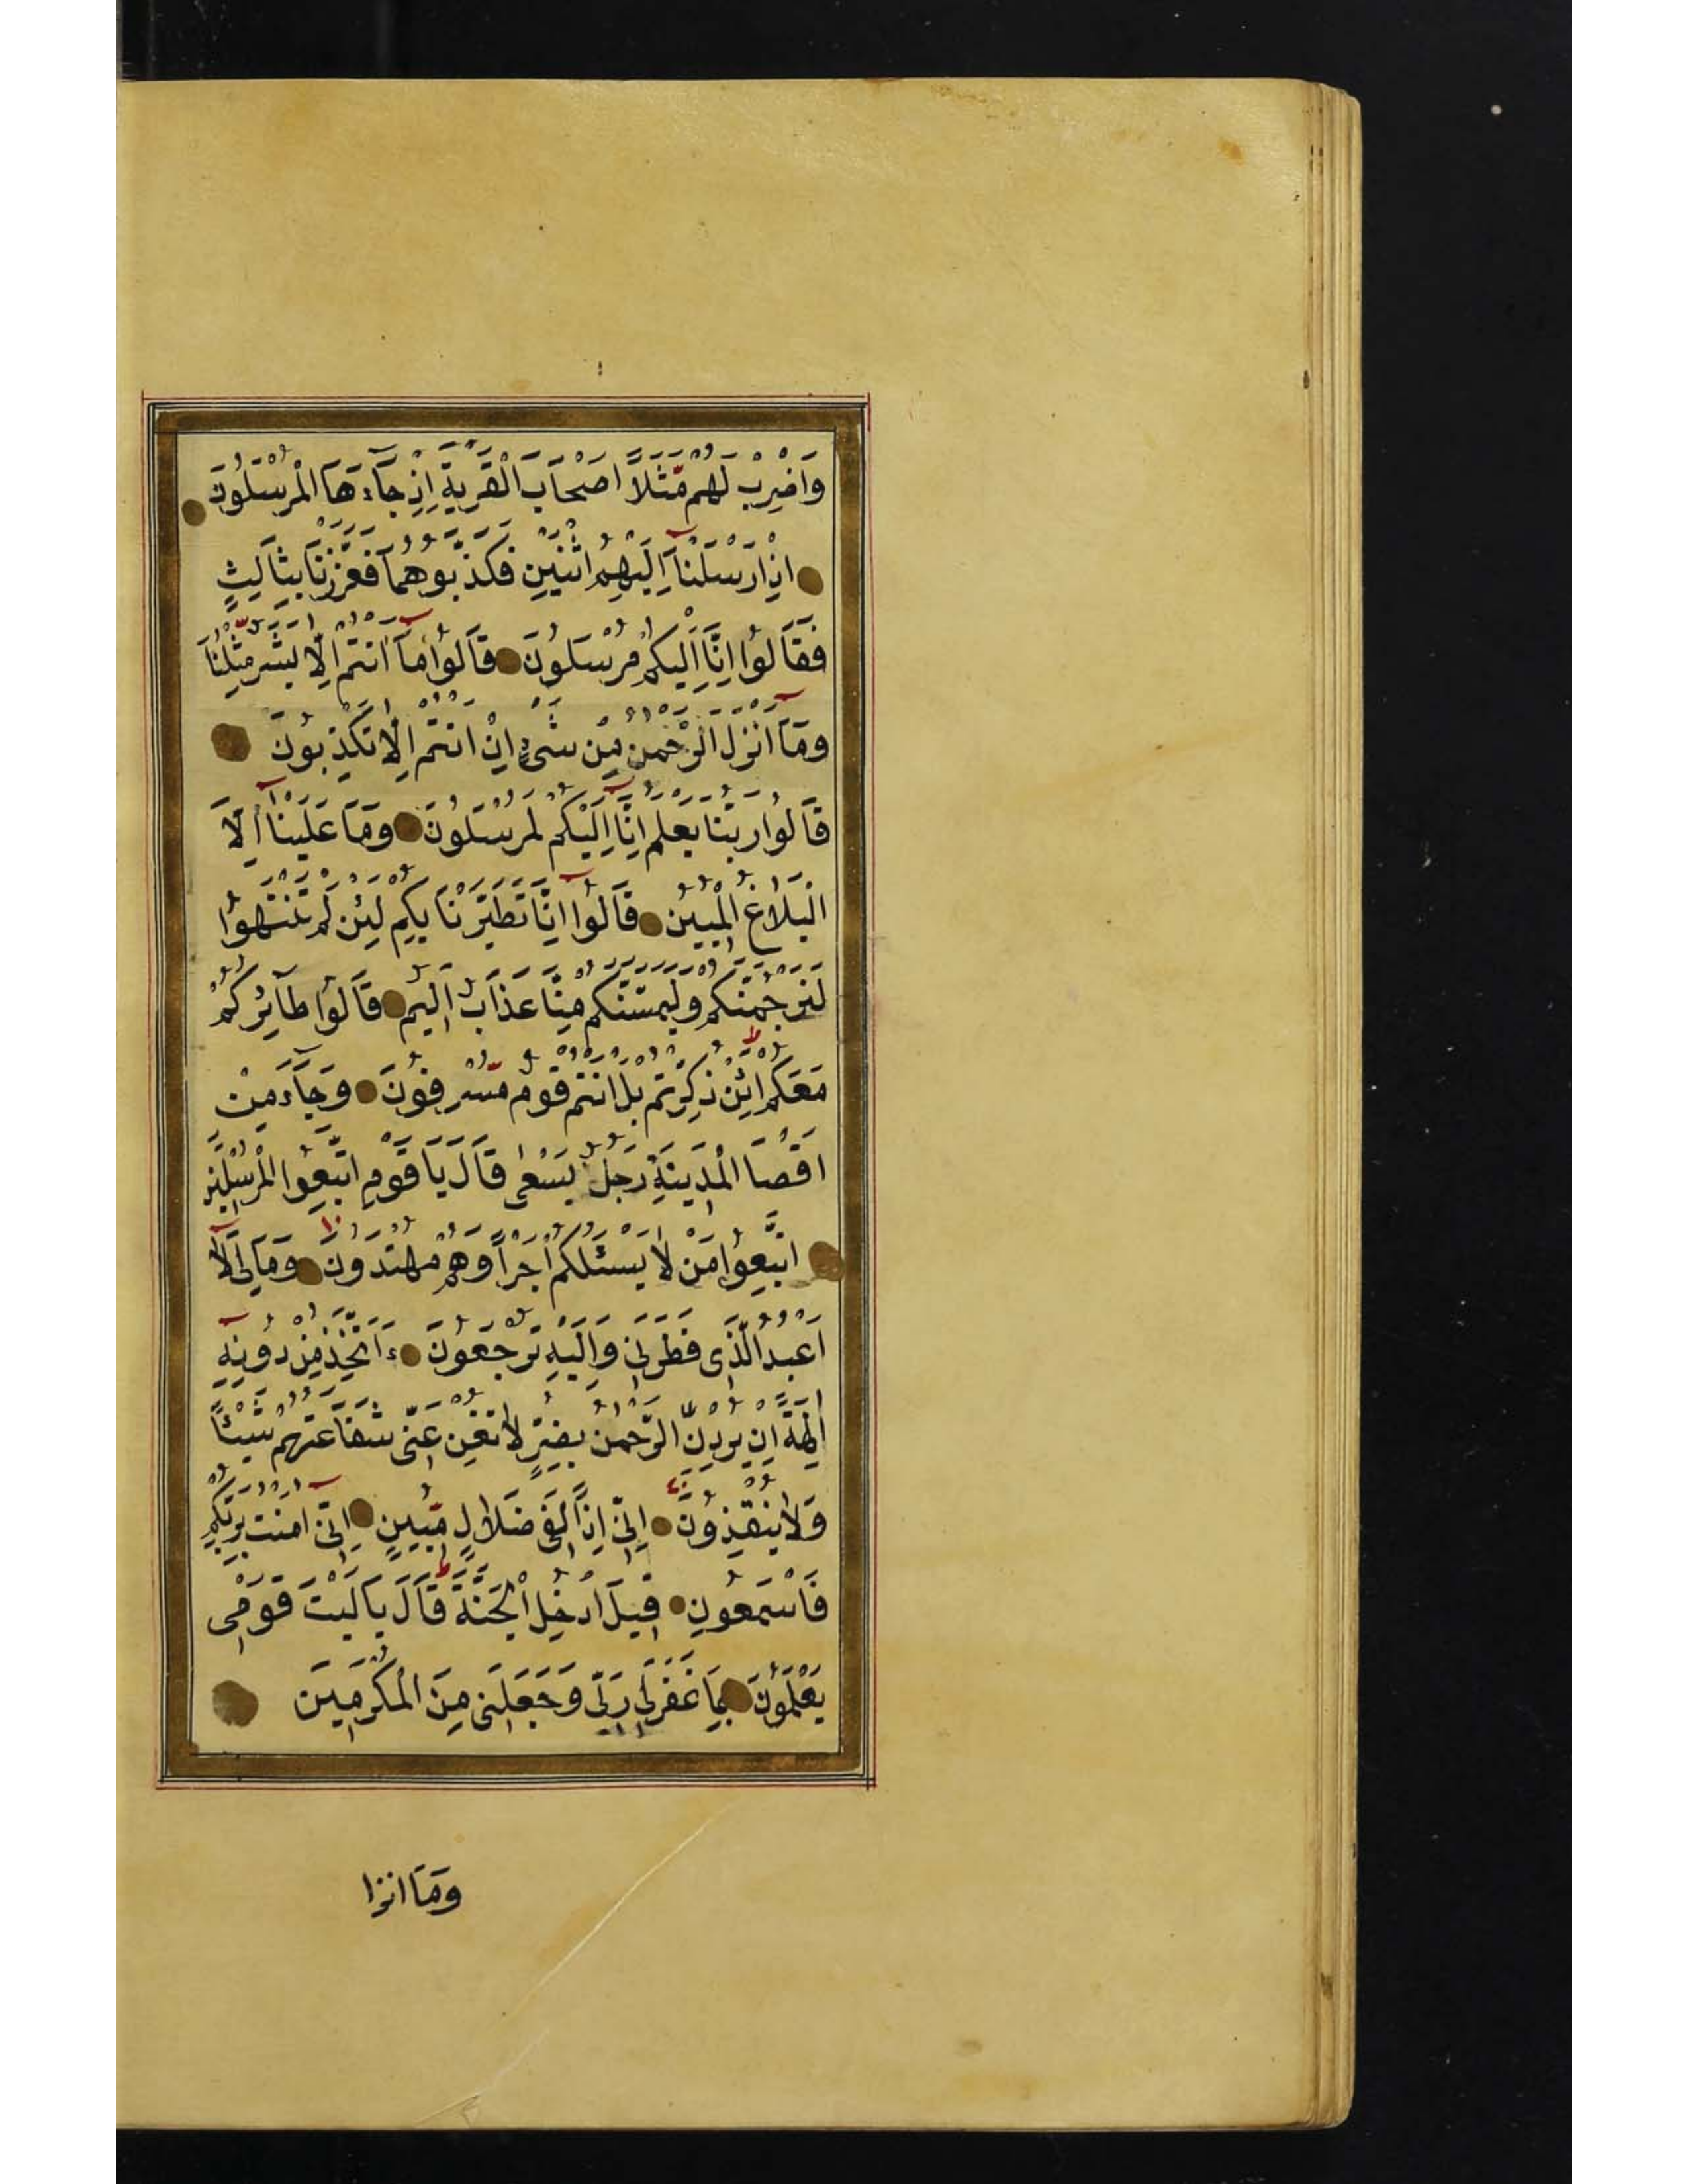 وَاضْرِبْ لَهُمْ مَّثَلًا اَصْحَابَ الْقَرْيَةِ اِذْ جَآءَهَا الْمُرْسَلُونَ
اِذْ اَرْسَلْنَآ اِلَيْهِمُ اثْنَيْنِ فَكَذَّبُوهُمَا فَعَزَّزْنَا بِثَالِثٍ
فَقَالُوا اِنَّا اِلَيْكُمْ مُرْسَلُونَ قَالُوا مَآ اَنْتُمْ اِلَّا بَشَرٌ مِّثْلُنَا
وَمَآ اَنْزَلَ الرَّحْمٰنُ مِنْ شَىْءٍ اِنْ اَنْتُمْ اِلَّا تَكْذِبُونَ
قَالُوا رَبُّنَا يَعْلَمُ اِنَّآ اِلَيْكُمْ لَمُرْسَلُونَ وَمَا عَلَيْنَآ اِلَّا
الْبَلَاغُ الْمُبِينُ قَالُوٓا اِنَّا تَطَيَّرْنَا بِكُمْ لَئِنْ لَمْ تَنْتَهُوا
لَنَرْجُمَنَّكُمْ وَلَيَمَسَّنَّكُمْ مِنَّا عَذَابٌ اَلِيمٌ قَالُوا طَآئِرُكُمْ
مَعَكُمْ اَئِنْ ذُكِّرْتُمْ بَلْ اَنْتُمْ قَوْمٌ مُّسْرِفُونَ وَجَآءَ مِنْ
اَقْصَا الْمَدِينَةِ رَجُلٌ يَسْعٰى قَالَ يَا قَوْمِ اتَّبِعُوا الْمُرْسَلِينَ
اتَّبِعُوا مَنْ لَا يَسْئَلُكُمْ اَجْرًا وَهُمْ مُهْتَدُونَ وَمَا لِىَ لَآ
اَعْبُدُ الَّذِى فَطَرَنِى وَاِلَيْهِ تُرْجَعُونَ ءَاَتَّخِذُ مِنْ دُونِهِٓ
اٰلِهَةً اِنْ يُرِدْنِ الرَّحْمٰنُ بِضُرٍّ لَا تُغْنِ عَنِّى شَفَاعَتُهُمْ شَيْئًا
وَلَا يُنْقِذُونَ اِنِّى اِذًا لَفِى ضَلَالٍ مُّبِينٍ اِنِّىٓ اٰمَنْتُ بِرَبِّكُمْ
فَاسْمَعُونِ قِيلَ ادْخُلِ الْجَنَّةَ قَالَ يَا لَيْتَ قَوْمِى
يَعْلَمُونَ بِمَا غَفَرَ لِى رَبِّى وَجَعَلَنِى مِنَ الْمُكْرَمِينَ
وَمَا انزا